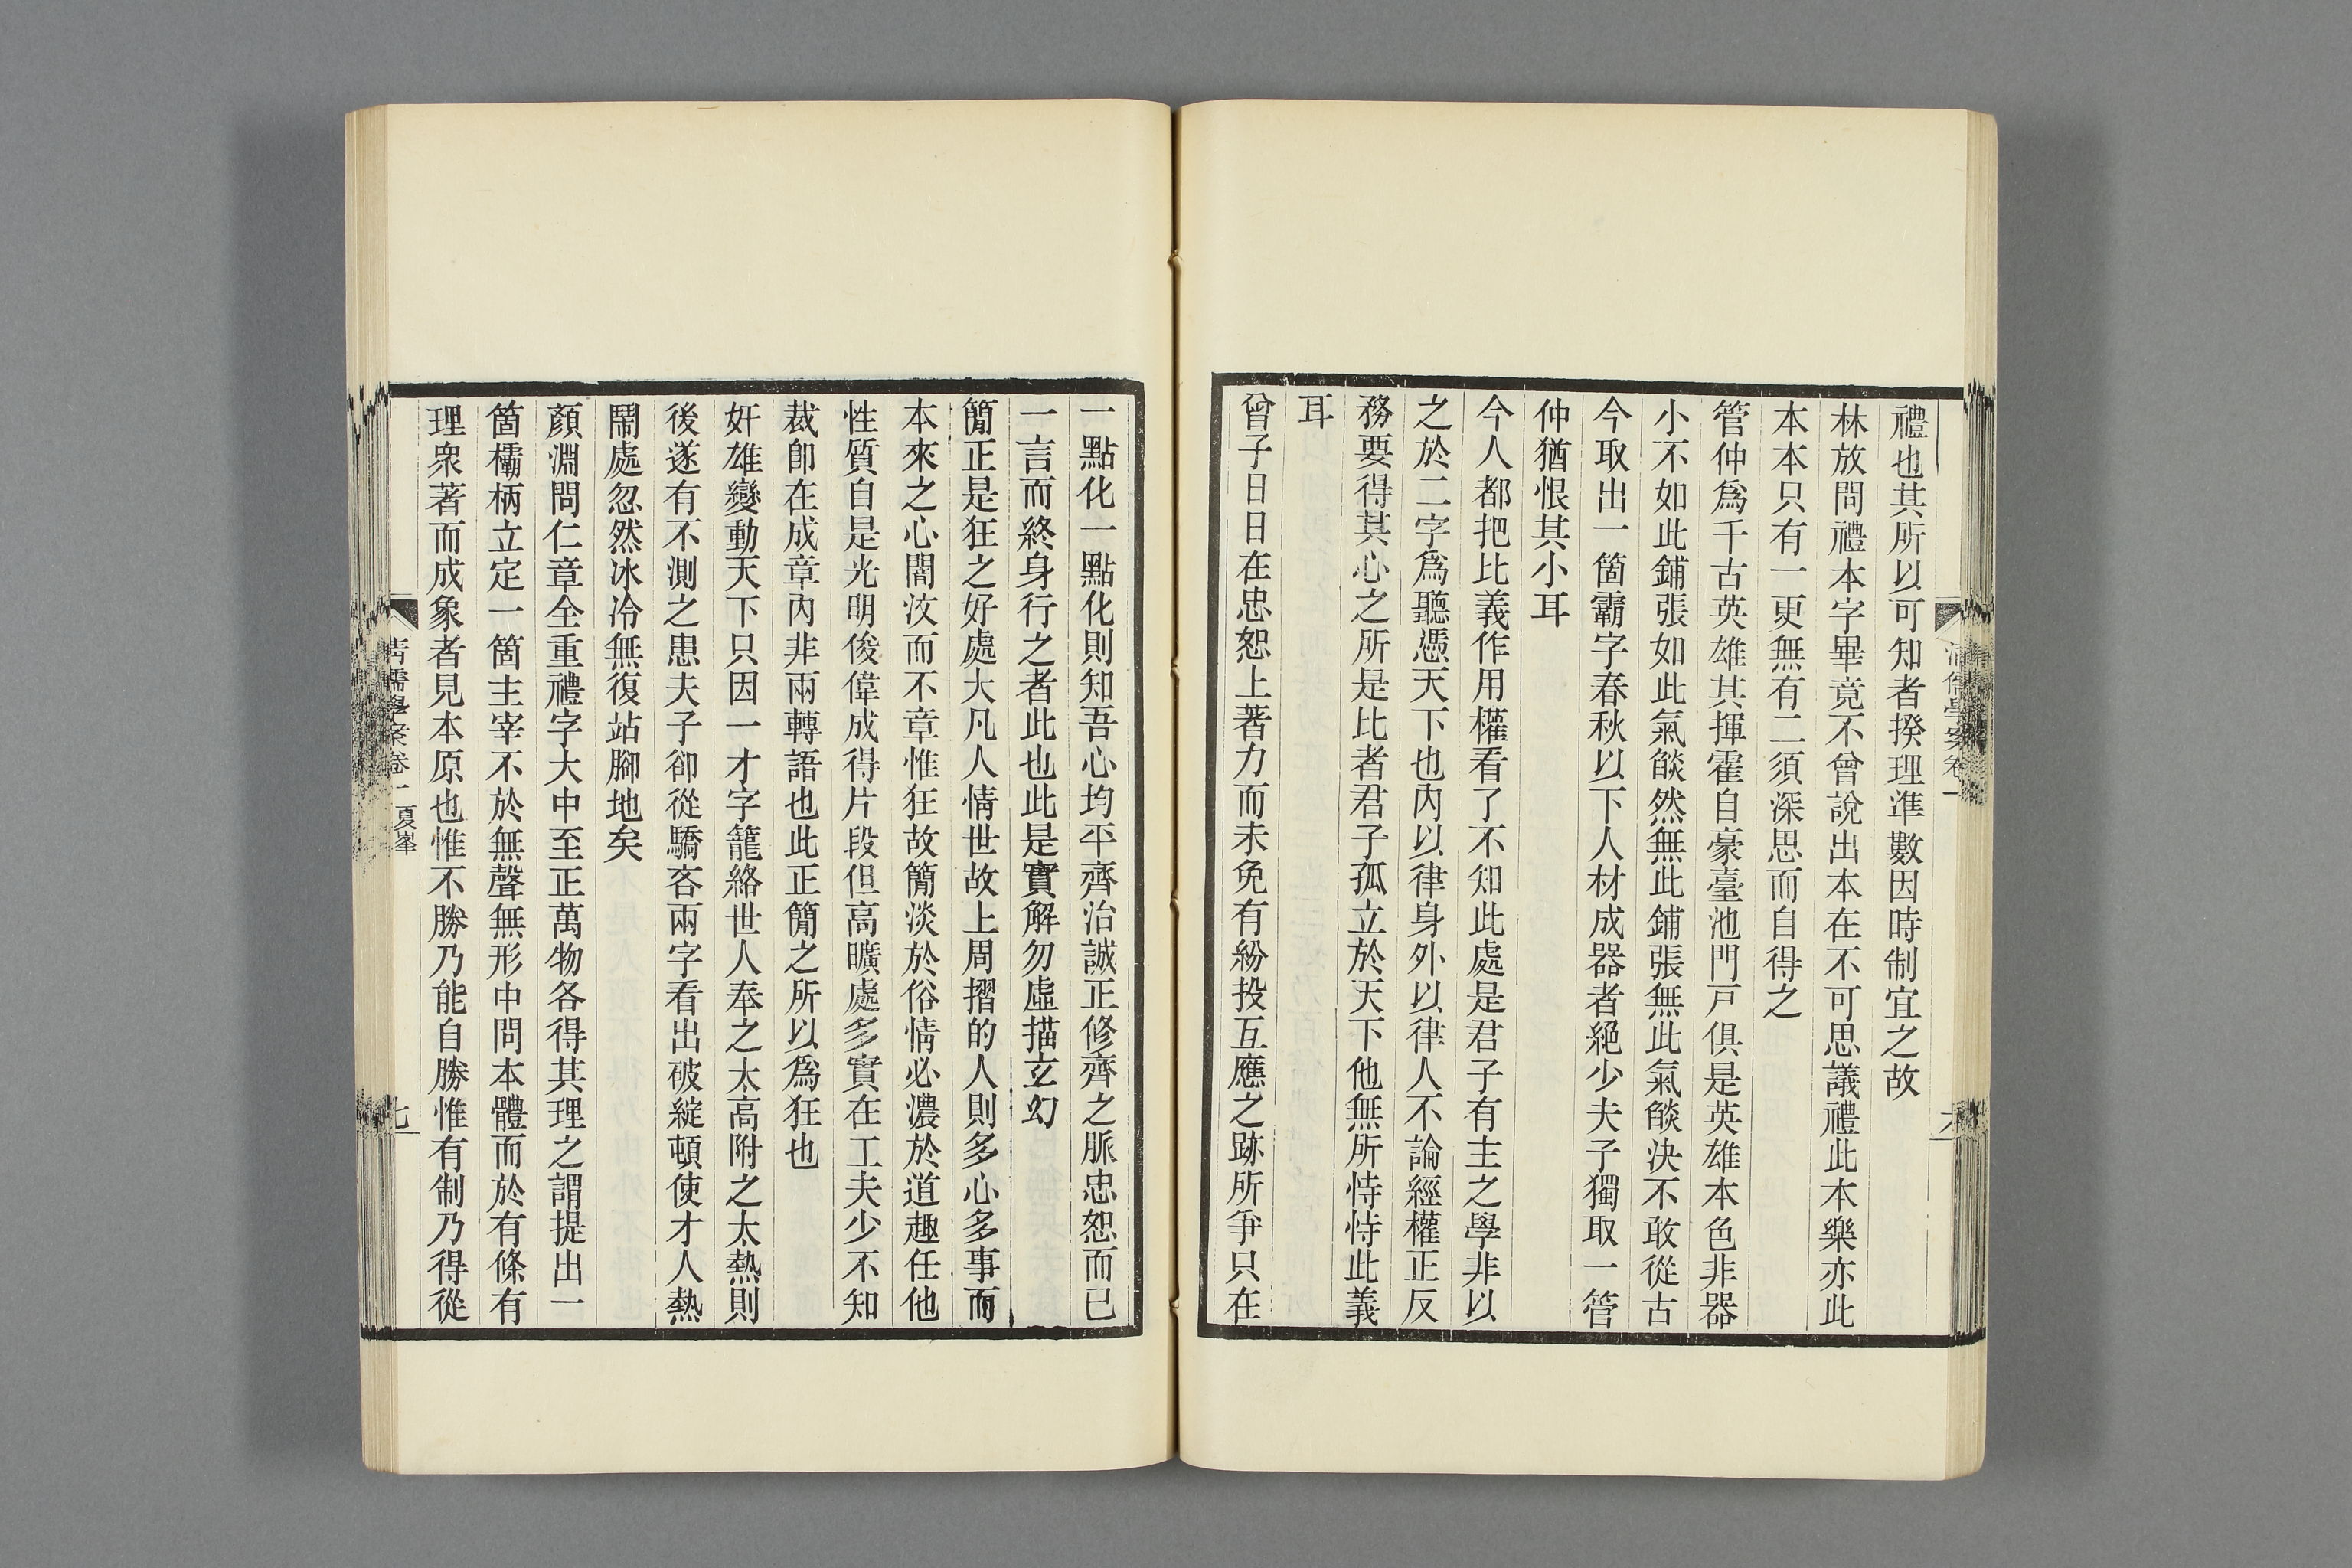 禮也其所以可知者揆理準數因時制宜之故
林放問禮本字畢竟不曾說出本在不可思議禮此本樂亦此
本本只有一更無有二須深思而自得之
管仲爲千古英雄其揮霍自豪臺池門戸俱是英雄本色非器
小不如此鋪張如此氣燄然無此鋪張無此氣燄決不敢從古
今取出一箇霸字春秋以下人材成器者絕少夫子獨取一管
仲猶恨其小耳
今人都把比義作用權看了不知此處是君子有主之學非以
之於二字爲聽憑天下也內以律身外以律人不論經權正反
務要得其心之所是比者君子孤立於天下他無所恃恃此義
耳
曾子日日在忠恕上著力而未免有紛投互應之跡所爭只在
一點化一點化則知吾心均平齊治誠正修齊之脈忠恕而已
一言而終身行之者此也此是實解勿虛描玄幻
簡正是狂之好處大凡人情世故上周摺的人則多心多事而
本來之心闇汶而不章惟狂故簡淡於俗情必濃於道趣任他
性質自是光明俊偉成得片段但高曠處多實在工夫少不知
裁卽在成章內非兩轉語也此正簡之所以爲狂也
奸雄變動天下只因一才字籠絡世人奉之太高附之太熱則
後遂有不測之患夫子卻從驕吝兩字看出破綻頓使才人熱
鬧處忽然冰冷無復站腳地矣
顏淵問仁章全重禮字大中至正萬物各得其理之謂提出一
箇欛柄立定一箇主宰不於無聲無形中問本體而於有條有
理衆著而成象者見本原也惟不勝乃能自勝惟有制乃得從
清儒學案卷一 夏峯
七